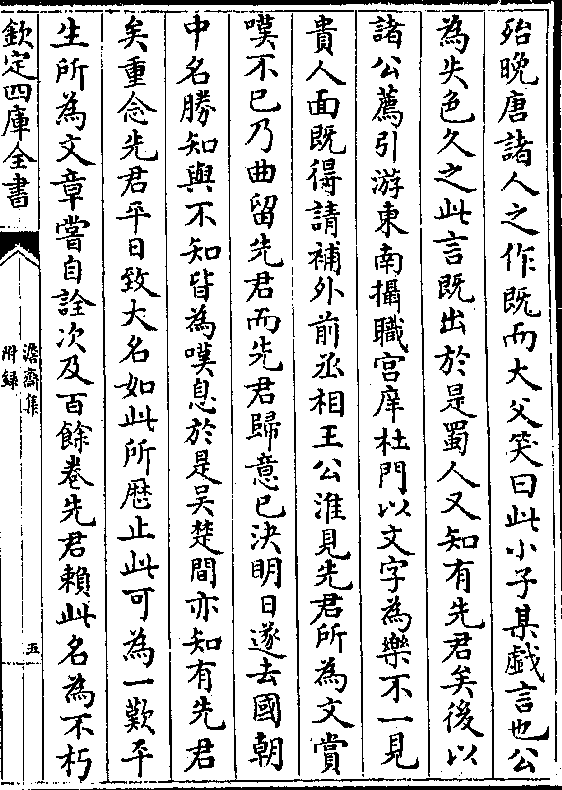 殆晚唐諸人之作既而大父笑曰此小子某戯言也公
為失色久之此言既出於是蜀人又知有先君矣後以
諸公薦引游東南攝職宫庠杜門以文字為樂不一見
貴人面既得請補外前丞相王公淮見先君所為文賞
嘆不已乃曲留先君而先君歸意已決明日遂去國朝
中名勝知與不知皆為嘆息於是吴楚間亦知有先君
矣重念先君平日致大名如此所歴止此可為一歎平
生所為文章嘗自詮次及百餘卷先君賴此名為不朽
欽定四庫全書
澹齋集
附録
五